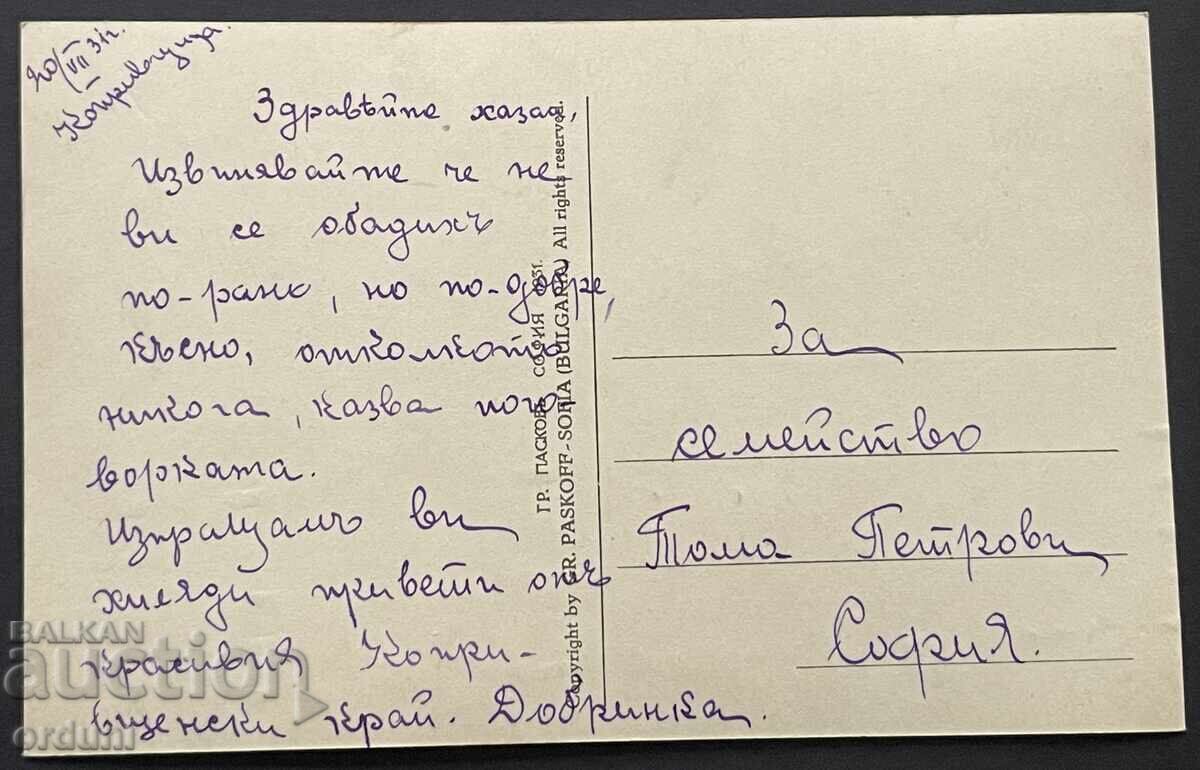 20/VII 31г.
Копривщица.
Здравѣйте хазая,
Извинявайте че не
ви се обадихъ
по-рано, но по-добре,
късно, отколкото
никога, казва пого-
ворката.
Изпращамъ ви
хиляди приветi отъ
красивия Копри-
вщенски край. Добринка.
ГР. ПАСКОВЪ СОФИЯ 1931.
Copyright by GR. PASKOFF-SOFIA (BULGARIA) All rights reserved.
За
семейство
Тома Петрови
София.
BALKAN
auction
orduni